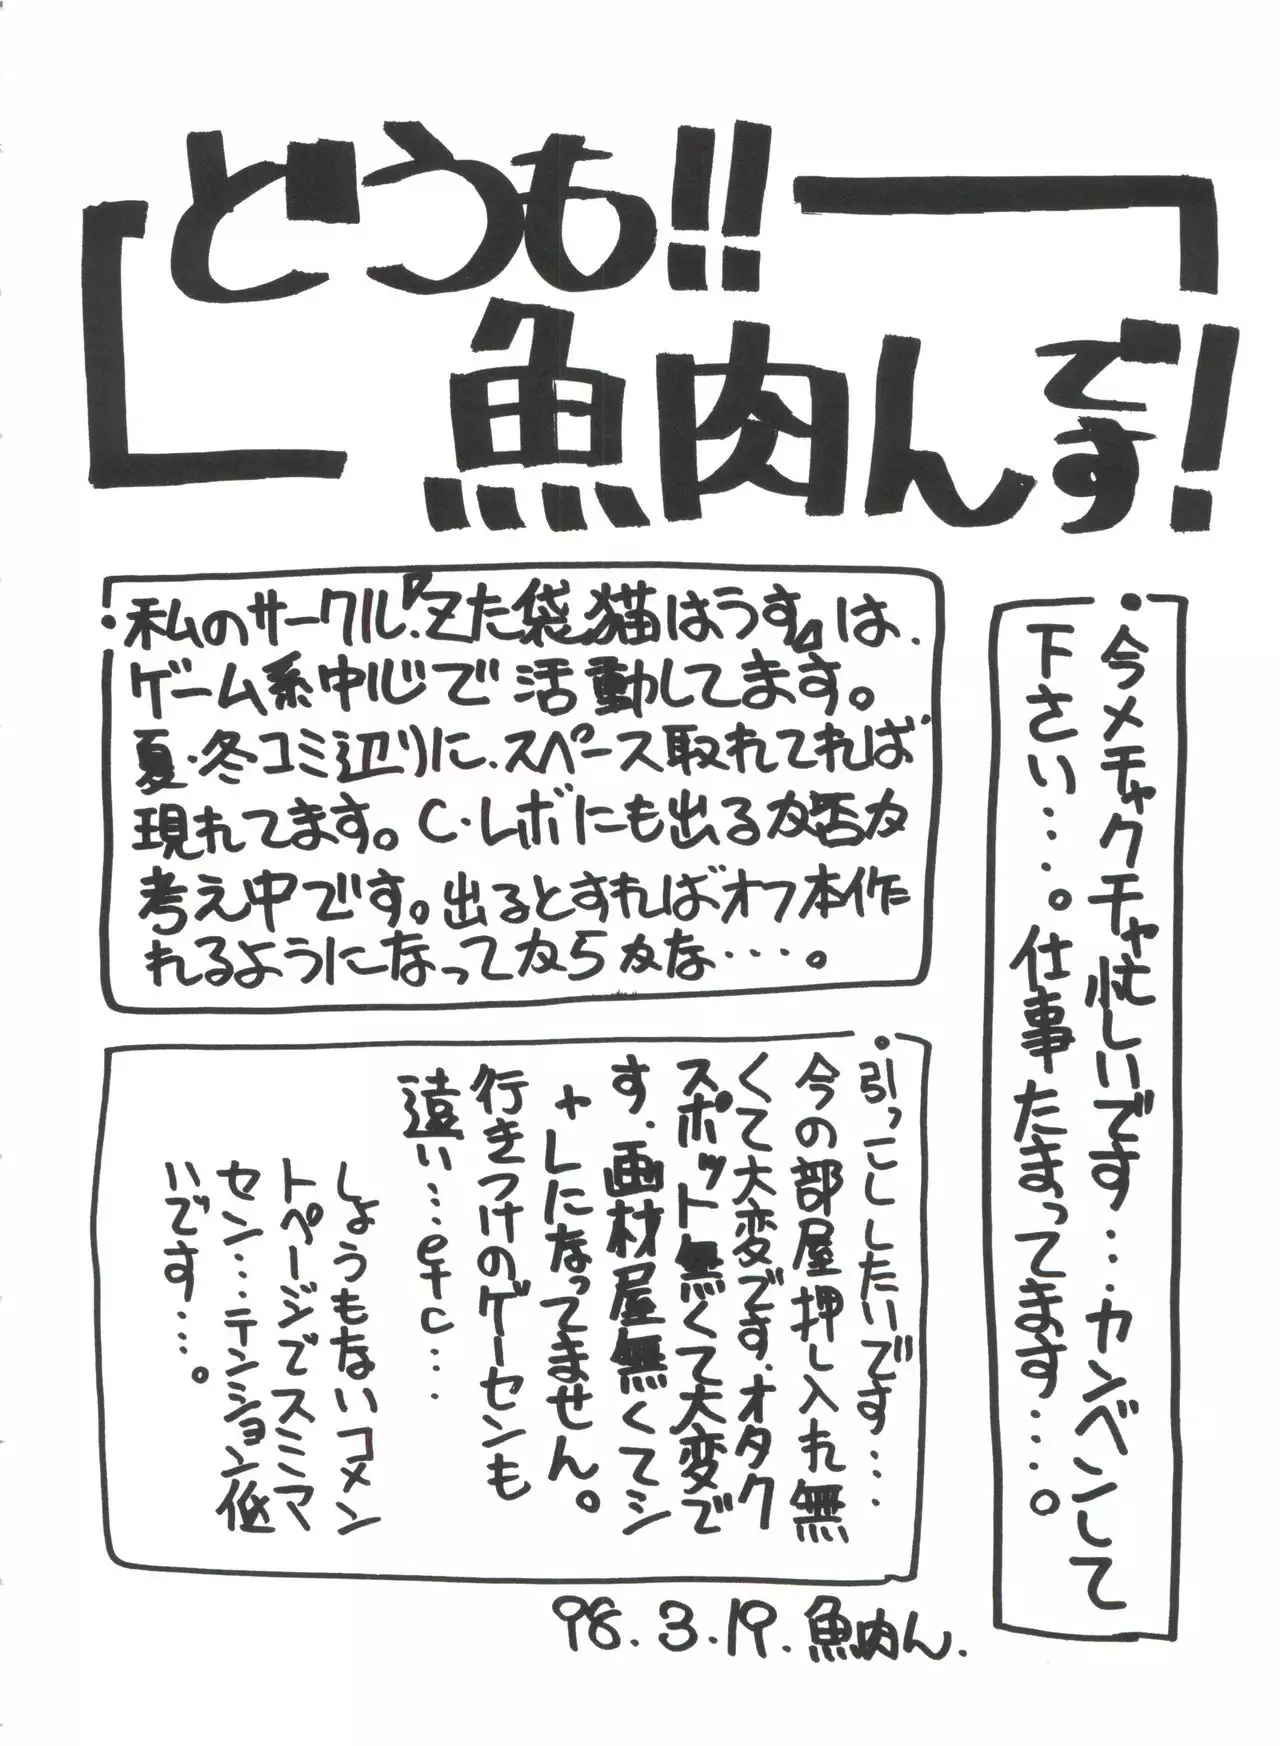 どうも!!
魚肉んです!
・今メチャクチャ忙しいです…。カンベンして
下さい…。仕事たまってます……。
・私のサークル、『Zた袋猫はうす』は、
ゲーム系中心で活動してます。
夏・冬コミ辺りに、スペース取れてれば
現れてます。C・レボにも出るか否か
考え中です。出るとすればオフ本作
れるようになってからかな…。
・引っこししたいです…
今の部屋押し入れ無
くて大変です。オタク
スポット無くて大変で
す。画材屋無くてシ
ャレになってません。
行きつけのゲーセンも
遠い…etc…
しょうもないコメン
トページでスミマ
セン…テンション低
いです…。
98.3.19.魚肉ん.